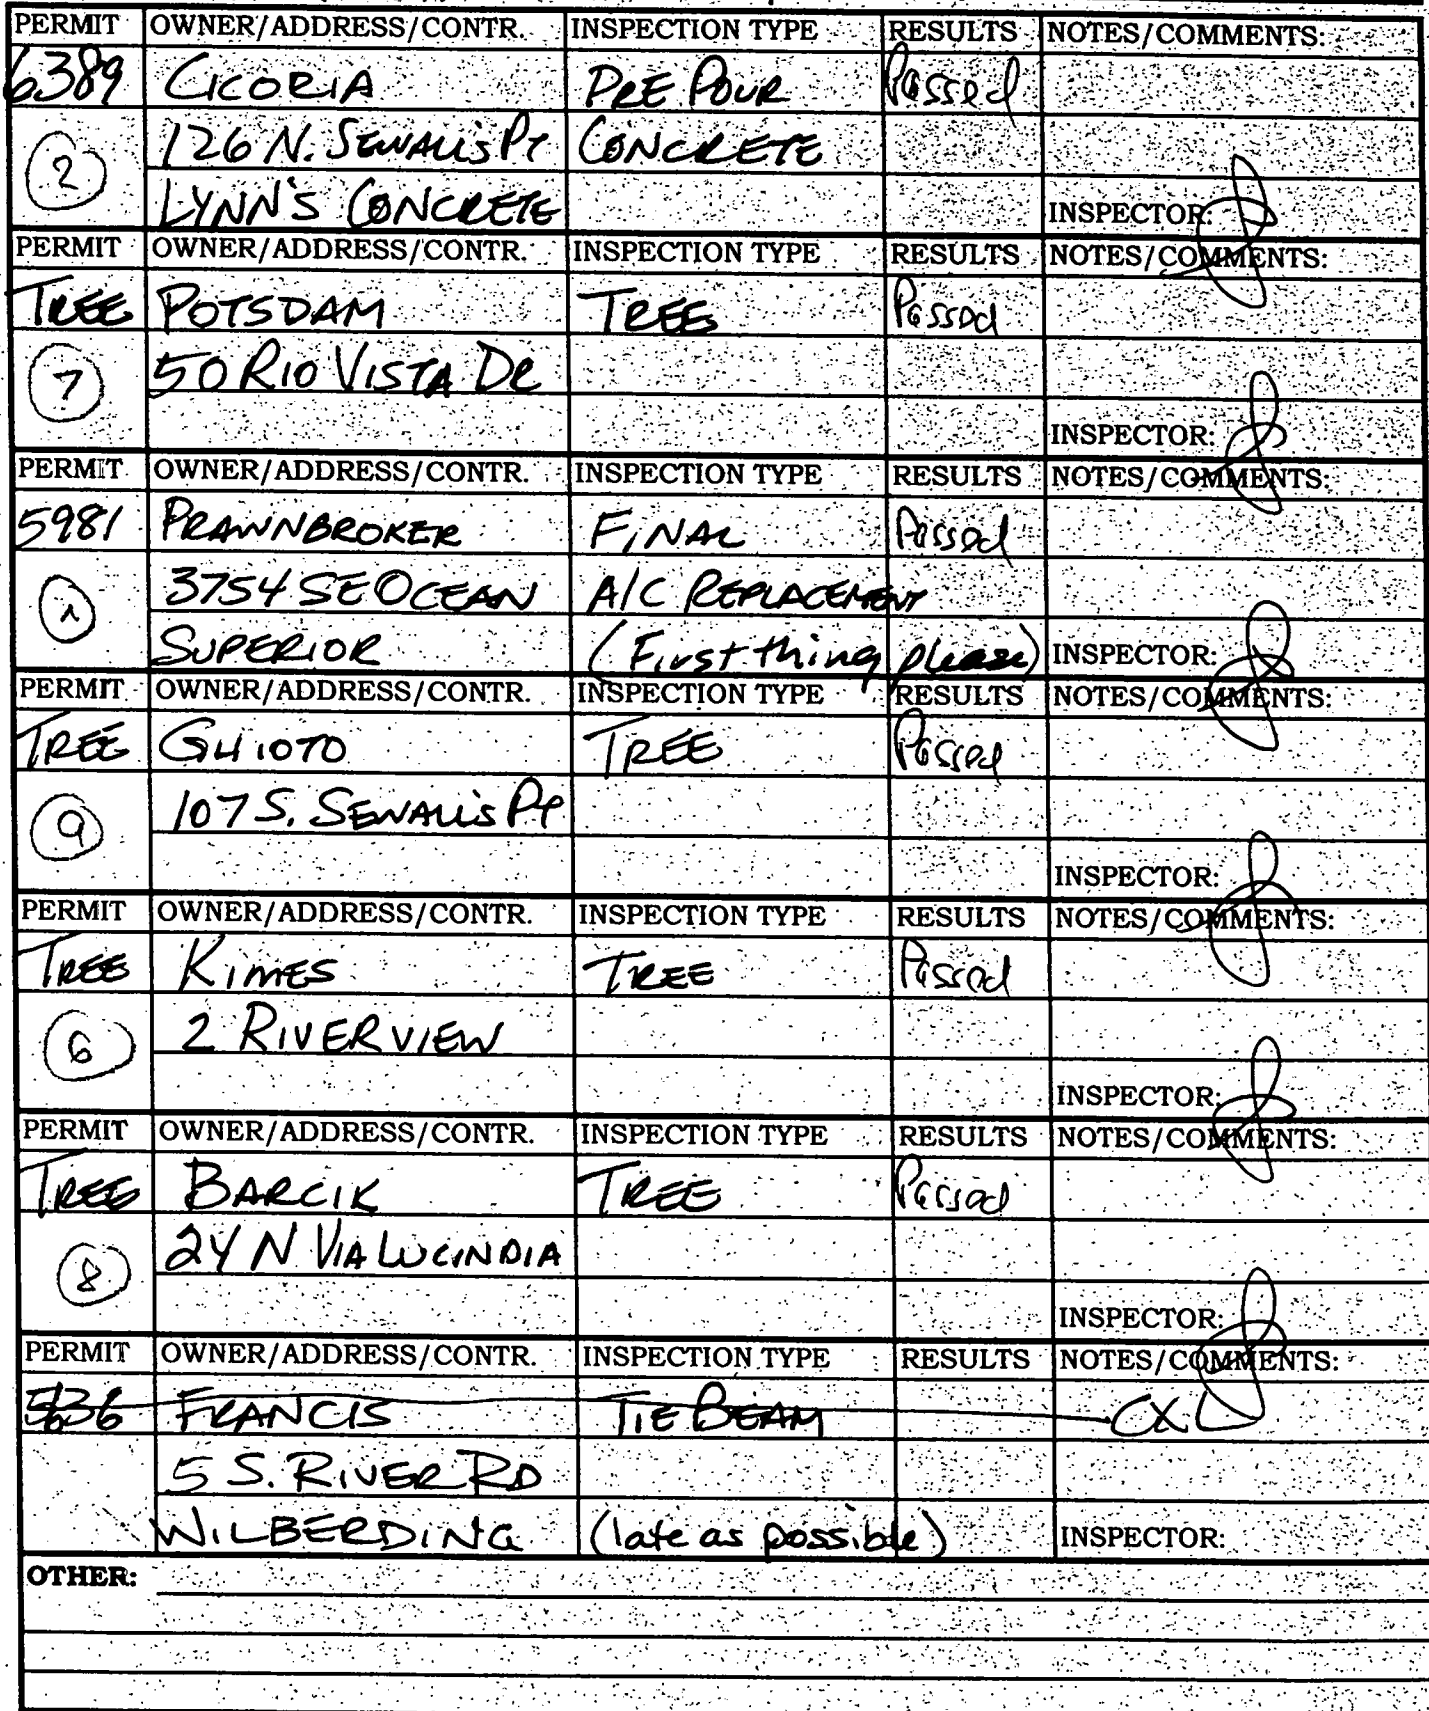 PERMIT OWNER/ADDRESS/CONTR. INSPECTION TYPE RESULTS NOTES/COMMENTS:
6389 CICORIA PRE POUR Passed
126 N. SEWALL'S PT CONCRETE
2
LYNN'S CONCRETE INSPECTOR:
PERMIT OWNER/ADDRESS/CONTR. INSPECTION TYPE RESULTS NOTES/COMMENTS:
TREE POTSDAM TREE Passed
7 50 RIO VISTA DR
INSPECTOR:
PERMIT OWNER/ADDRESS/CONTR. INSPECTION TYPE RESULTS NOTES/COMMENTS:
5981 PRAWNBROKER FINAL Passed
1 3754 SE OCEAN A/C REPLACEMENT
SUPERIOR (First thing please) INSPECTOR:
PERMIT OWNER/ADDRESS/CONTR. INSPECTION TYPE RESULTS NOTES/COMMENTS:
TREE GHIOTO TREE Passed
9 107 S. SEWALL'S PT
INSPECTOR:
PERMIT OWNER/ADDRESS/CONTR. INSPECTION TYPE RESULTS NOTES/COMMENTS:
TREE KIMES TREE Passed
6 2 RIVERVIEW
INSPECTOR:
PERMIT OWNER/ADDRESS/CONTR. INSPECTION TYPE RESULTS NOTES/COMMENTS:
TREE BARCIK TREE Passed
8 24 N VIA LUCINDIA
INSPECTOR:
PERMIT OWNER/ADDRESS/CONTR. INSPECTION TYPE RESULTS NOTES/COMMENTS:
FRANCIS TIE BEAM CX
5 S. RIVER RD
WILBERDING (late as possible) INSPECTOR:
OTHER: